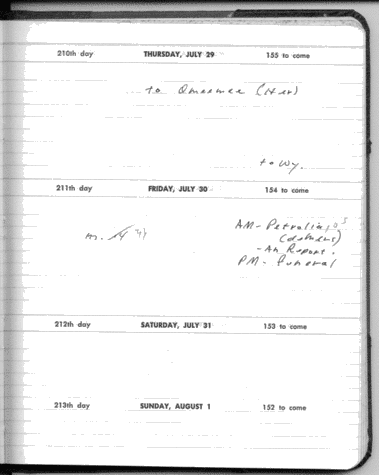 210th day THURSDAY, JULY 29 155 to come
to
to Wy.
211th day FRIDAY, JULY 30 154 to come
AM - Petrolia,
m.
- An Report.
PM - Funeral
212th day SATURDAY, JULY 31 153 to come
213th day SUNDAY, AUGUST 1 152 to come